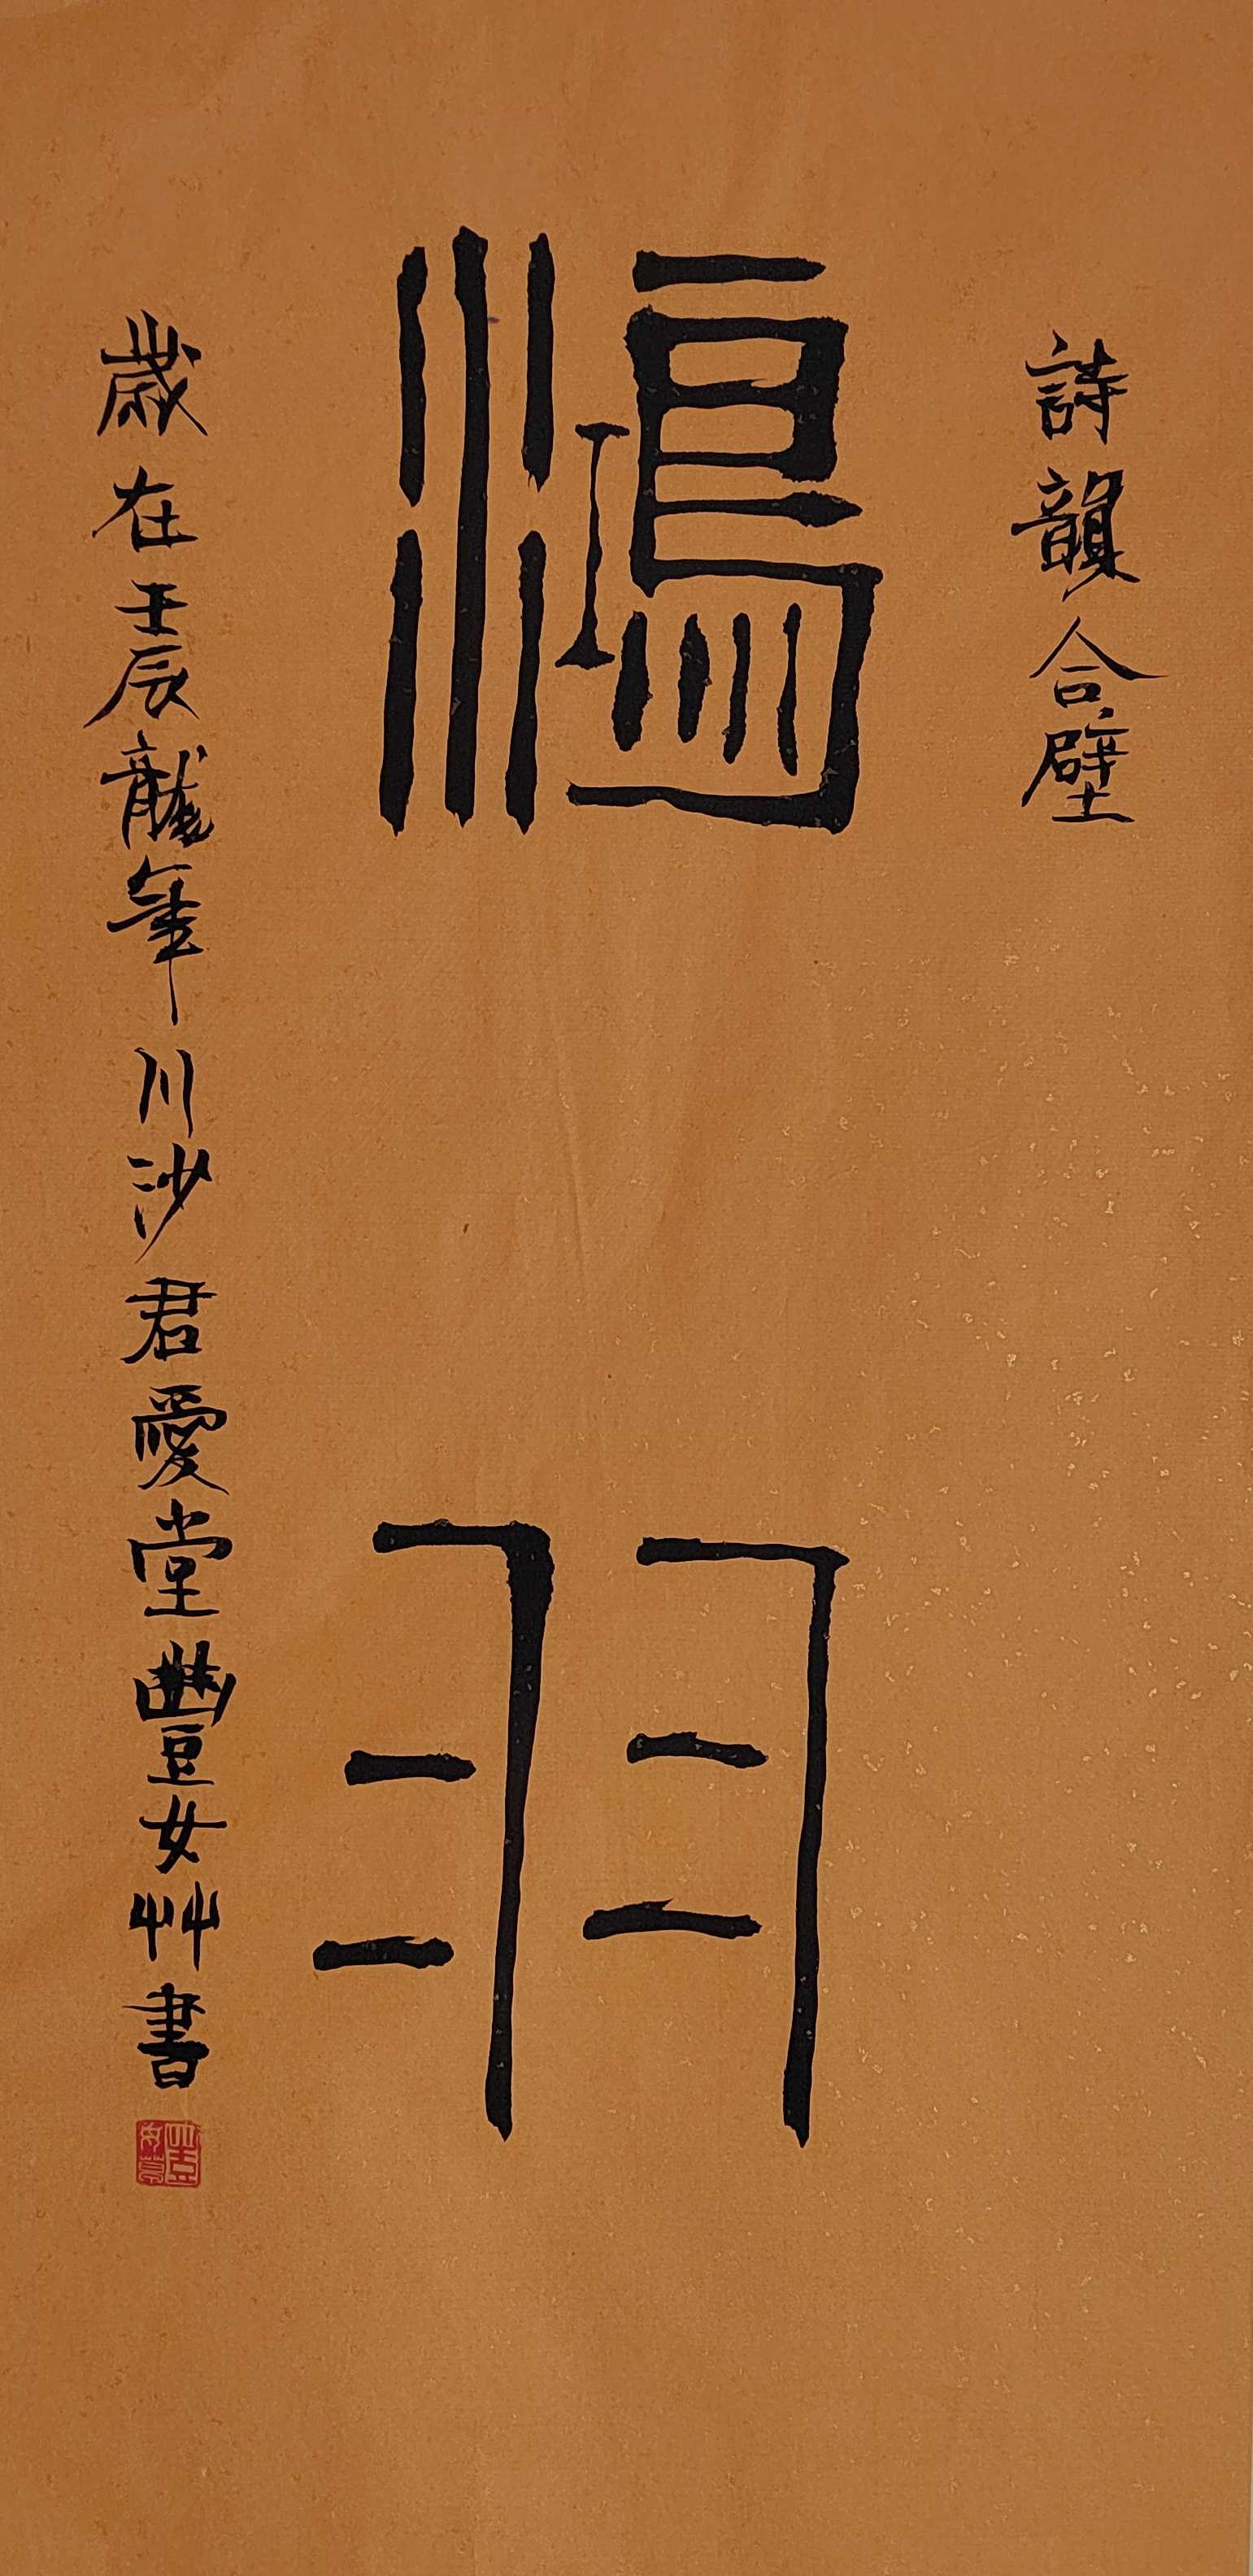 詩韻合壁
鴻羽
歲在壬辰龍年川沙君愛堂豐女艸書